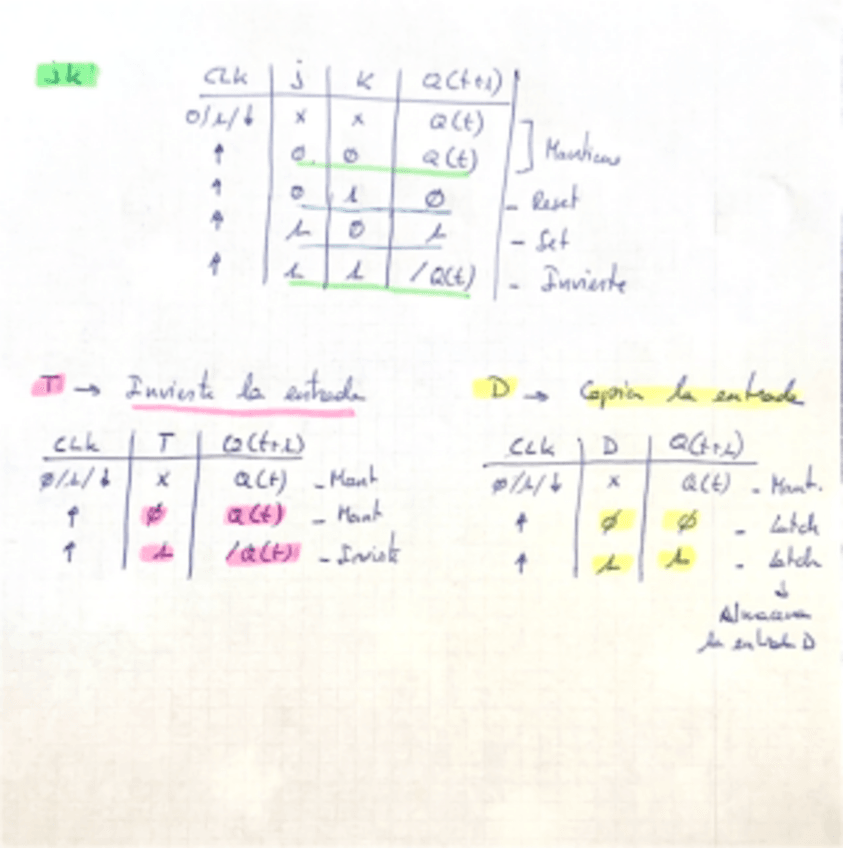 jk
CLK | j | K | Q(t+1)
0/1/↓ | x | x | Q(t)
↑ | 0 | 0 | Q(t) ] Mantiene
↑ | 0 | 1 | 0 - Reset
↑ | 1 | 0 | 1 - Set
↑ | 1 | 1 | /Q(t) - Invierte
T → Invierte la entrada
CLK | T | Q(t+1)
0/1/↓ | x | Q(t) - Mant
↑ | 0 | Q(t) - Mant
↑ | 1 | /Q(t) - Invierte
D → Copia la entrada
CLK | D | Q(t+1)
0/1/↓ | x | Q(t) - Mant.
↑ | 0 | 0 - Latch
↑ | 1 | 1 - Latch
↓
Almacena
la entrada D